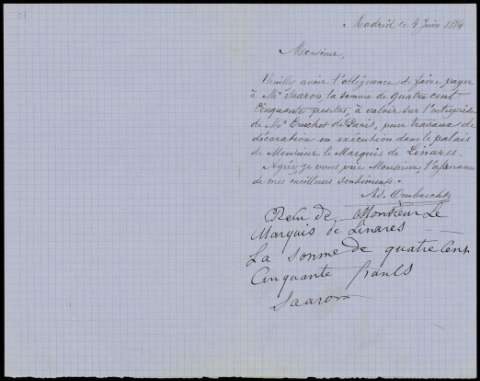 Madrid le 4 Juin 1884
Monsieur,
Veuillez avoir l'obligeance de faire payer
à Mr Saaron la somme de quatre cent
cinquante pesetas, à valoir sur l'entreprise
de Mr de Paris, pour travaux de
décoration en exécution dans le palais
de Monsieur le Marquis de Linares.
Agréez, je vous prie Monsieur, l'assurance
de mes meilleurs sentiments.
Ad.
Resu de Montieur Le
Marquis de Linares
La somme de quatre Cent
Cinquante francs
Saaron